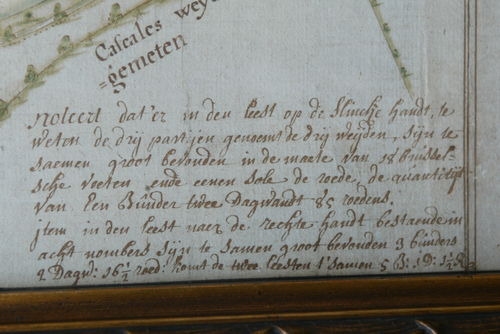 Cascales wey
=gemeten
Noteert dat'er in den leest op de slincke handt, te
weten de drij partijen genoemt de drij weijden, sijn te
saemen groot bevonden in de maete van 18 Brussel=
sche voeten ende eenen sole de roede, de quantitijt
van Een Bunder twee Dagwandt 85 roedens.
jtem in den leest naer de rechte handt bestaende in
acht nombers sijn te samen groot bevonden 3 bunders
2 Dagw: 16½ roed: komt de twee leesten t'samen 5 B: 1 D: 1½ R